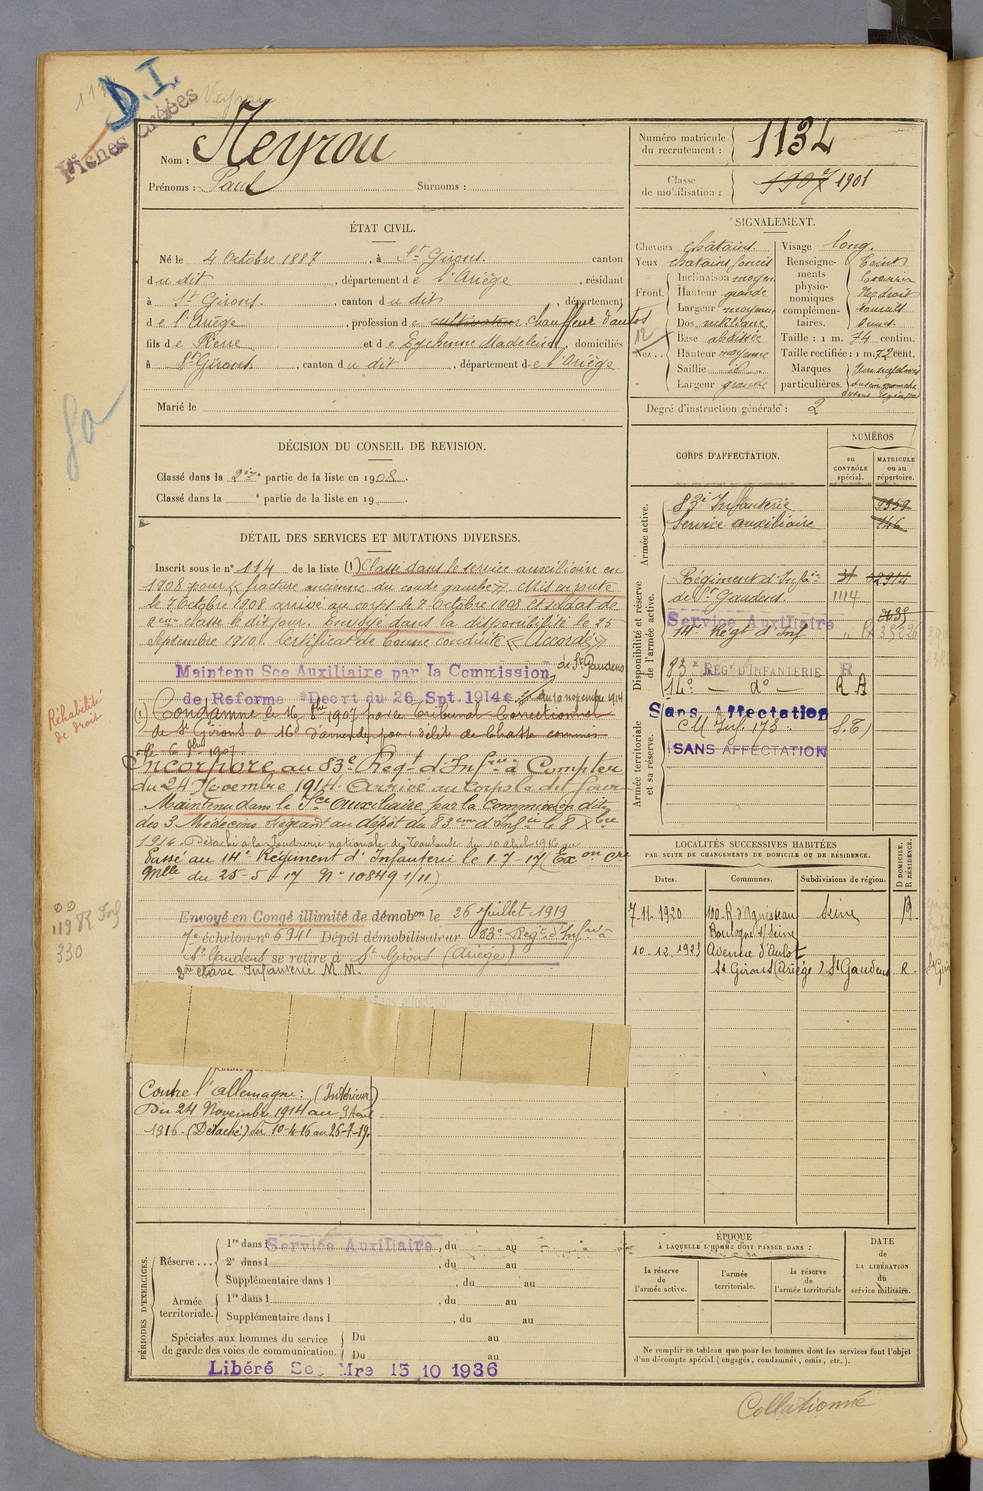 D.I.
Fiches créées
Nom : Neyrou
Prénoms : Paul Surnoms :
Numéro matricule du recrutement : 1134
Classe de mobilisation : 1907 1901
ÉTAT CIVIL.
Né le 4 Octobre 1887, à St Girons. canton
du dit, département de l'Ariége, résidant
à St Girons., canton du dit, département
de l'Ariége, profession de cultivateur chauffeur d'autos
fils de Pierre et de Eychenne Madeleine, domiciliés
à St Girons., canton du dit, département de l'Ariége
Marié le
SIGNALEMENT.
Cheveux châtains. Visage long.
Yeux chatains foncés
Front. Inclinaison moyen
Hauteur grande
Largeur moyenne
Nez. Dos rectiligne
Base abaissée
Hauteur moyenne
Saillie id
Largeur grande
12
Renseignements physionomiques complémentaires.
Teint
Nez droit
Taille : 1 m. 74 centim.
Taille rectifiée : 1 m. 72 cent.
Marques particulières.
Degré d'instruction générale : 2
DÉCISION DU CONSEIL DE REVISION.
Classé dans la 2ème partie de la liste en 1908.
Classé dans la ° partie de la liste en 19
DÉTAIL DES SERVICES ET MUTATIONS DIVERSES.
Inscrit sous le n° 114 de la liste (1) Classé dans le service auxiliaire en
1908 pour « fracture ancienne du coude gauche ». Mis en route
le 7 Octobre 1908 arrivé au corps le 7 Octobre 1908 et soldat de
2eme classe le dit jour. Envoyé dans la disponibilité le 25
Septembre 1910. Certificat de bonne conduite « Accordé »
Maintenu Sce Auxiliaire par la Commission de St Gaudens
de Reforme Decrt du 26 Spt. 1914 du 10 novembre 1914
(1) Condamné le 16 1907 par le Tribunal Correctionnel
de St Girons à 16f d'amende pour délit de Chasse commis
le 6 1907
Incorporé au 83e Regt d'Infrie à Compter
du 24 Novembre 1914. Arrivé au Corps le dit jour
Maintenu dans le Sce auxiliaire par la Commission dite
des 3 Médecins siégeant au dépôt du 83eme d'Infie le 8 Xbre
1914. Détaché à la Poudrerie nationale de Toulouse du 10 avril 1916 au
Passé au 14e Régiment d'Infanterie le 1-7-17 (Exon Cre
Mlle du 25-5-17 N° 10849 1/11)
Envoyé en Congé illimité de démobon le 26 Juillet 1919
7e échelon n° 5941 Dépôt démobilisateur 83e Regt d'Infie à
St Gaudens se retire à St Girons (Ariége)
2me classe Infanterie M.M.
Contre l'allemagne : (Intérieur)
Du 24 Novembre 1914 au 9 Avril
1916. (Détaché) du 10-4-16 au 26-7-19.
Réhabilité de droit
OD
119 R Inf
330
CORPS D'AFFECTATION.
NUMÉROS
DU CONTRÔLE spécial.
MATRICULE ou au répertoire.
Armée active.
83e Infanterie 9359
Service auxiliaire 146
Disponibilité et réserve de l'armée active.
Régiment d'Infrie
de St Gaudens. 1114
Service Auxiliaire
14e Régt d'Inf
83e REGt D'INFANTERIE R
14e — do — R A
Armée territoriale et sa réserve.
Sans Affectation
CM Inf. 173. S.T)
SANS AFFECTATION
LOCALITÉS SUCCESSIVES HABITÉES
PAR SUITE DE CHANGEMENTS DE DOMICILE OU DE RÉSIDENCE.
Dates. Communes. Subdivisions de région.
D DOMICILE. R RÉSIDENCE.
7-11-1920 100-R. d'Aguesseau Seine R.
Boulogne s/ Seine
10.12.1923 Avenue d'Aulot
St Girons (Ariége) St Gaudens R.
PÉRIODES D'EXERCICES.
Réserve... 1re dans l Service Auxiliaire, du au
2e dans l, du au
Supplémentaire dans l, du au
Armée territoriale. 1re dans l, du au
Supplémentaire dans l, du au
Spéciales aux hommes du service de garde des voies de communication. Du au
Du au
Libéré Sce Mre 15 10 1936
EPOQUE
À LAQUELLE L'HOMME DOIT PASSER DANS :
la réserve de l'armée active.
l'armée territoriale.
la réserve de l'armée territoriale
DATE de LA LIBÉRATION du service militaire.
Ne remplir ce tableau que pour les hommes dont les services font l'objet
d'un décompte spécial (engagés, condamnés, omis, etc.).
Collationné